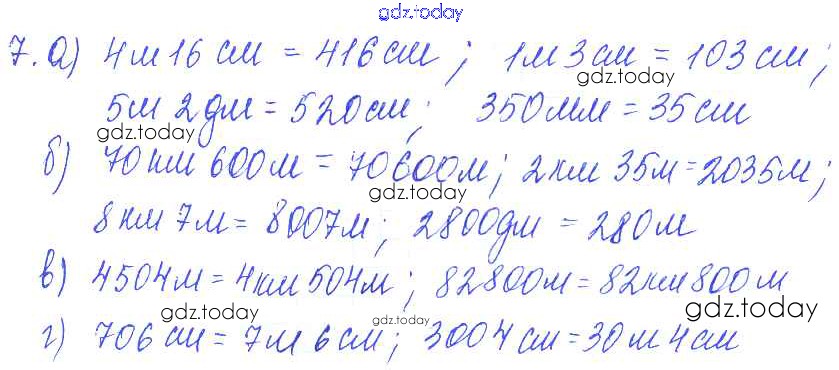 gdz.today
7. а) 4м 16 см = 416 см; 1м 3 см = 103 см;
gdz.today
5м 2 дм = 520 см; 350 мм = 35 см
gdz.today
б) 70 км 600 м = 70600 м; 2 км 35 м = 2035 м;
gdz.today
8 км 7 м = 8007 м; 2800 дм = 280 м
gdz.today
в) 4504 м = 4 км 504 м; 82800 м = 82 км 800 м
gdz.today gdz.today gdz.today
г) 706 см = 7 м 6 см; 3004 см = 30 м 4 см